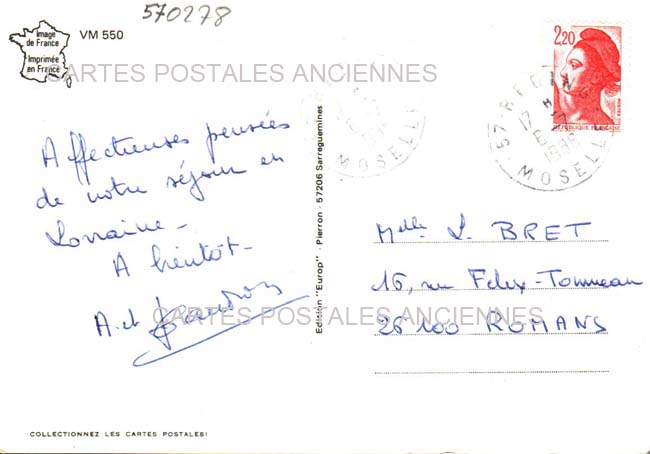 570278
Image
de France
Imprimée
en France
VM 550
CARTES POSTALES ANCIENNES
2,20
REPUBLIQUE FRANÇAISE
57 REDING
17 H
6 -7
MOSELLE
MOSELLE
Affectueuses pensées
de notre séjour en
Lorraine -
A bientôt -
A. et
Edition "Europ" - Pierron - 57206 Sarreguemines
Melle L. BRET
16, rue Felix-Tonneau
26100 ROMANS
CARTES POSTALES ANCIENNES
COLLECTIONNEZ LES CARTES POSTALES!